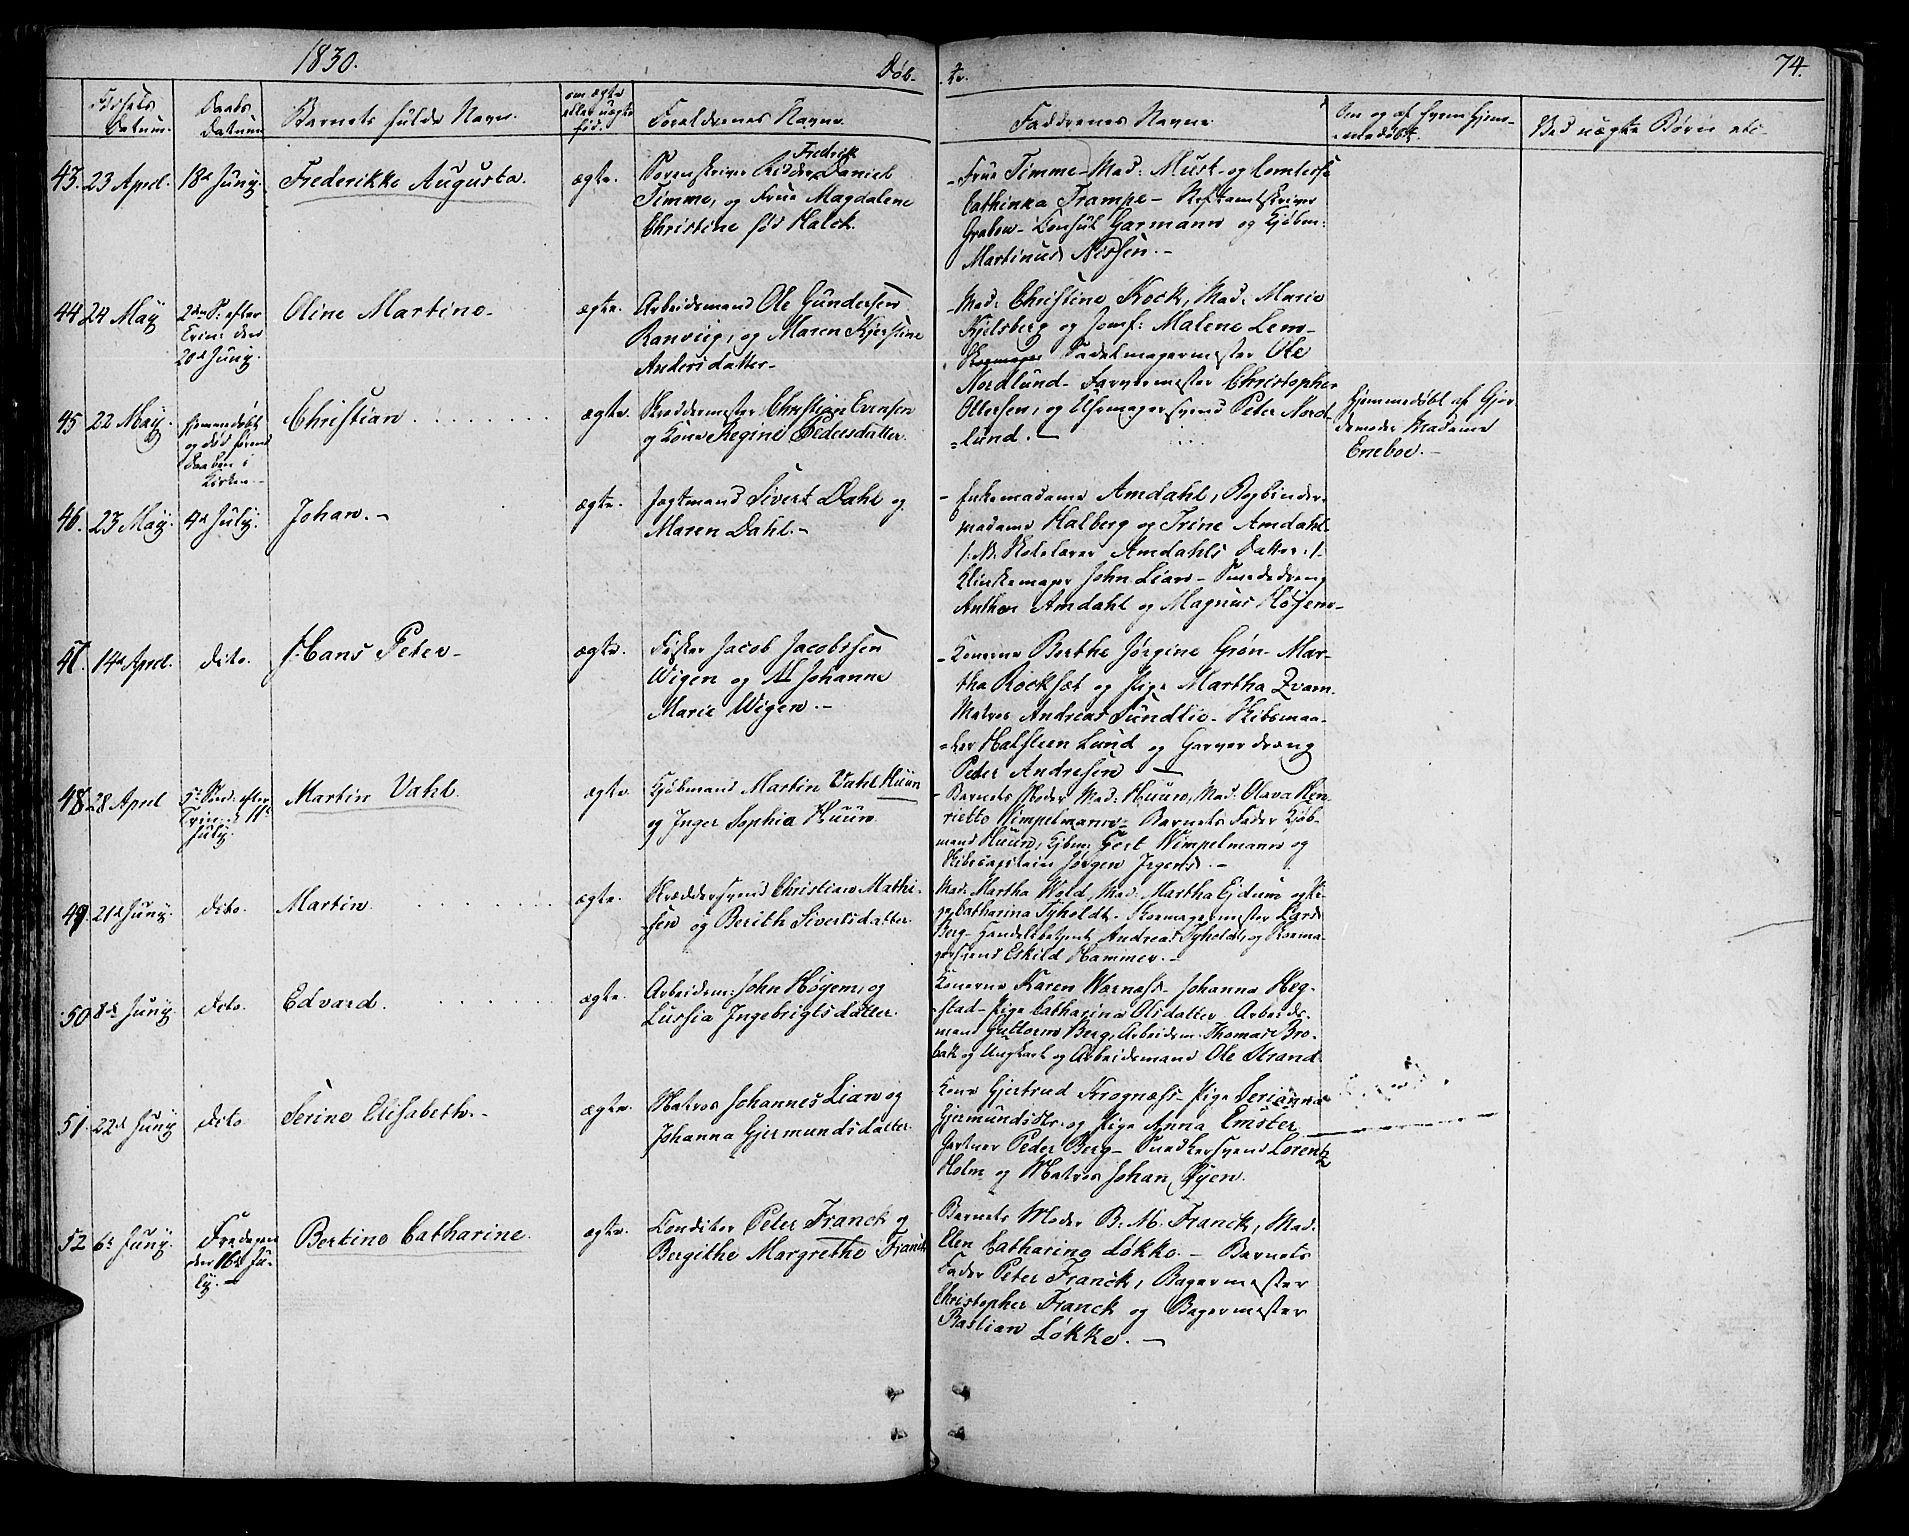 1830.
Døb-
te.
74.
Fødsels Datum.
Daabs Datum
Barnets fulde Navn.
om ægte eller uægte fød.
Forældrenes Navne
Faddrenes Navne.
Om og af hvem Hjem-
medøbt.
Ved uægte Børn etc
43. 23 April. 18de Juny. Frederikke Augusta. ægte.
Fredrik
Sorenskriver Ridder Daniel
Timme, og Frue Magdalene
Christine fød Halck.
- Frue Timme - Mad: Must - og Comtesse
Cathinka Trampe - Stiftamtskriver
Graben - Consul Garmann og Kjøbm:
Martinus Nissen. -
44. 24 May
2den S. efter
Trin: den
20de Juny.
Oline Martine -
ægte.
Arbeidsmand Ole Gundersen
Ranveig, og Maren Kjerstine
Andersdatter -
- Mad: Christine Kock, Mad: Marie
Kjelsberg og Jomf: Malene Lem -
Skomager Sadelmagermester Ole
Nordlund - Farvermester Christopher
Ottersen, og Uhrmagersvend Peter Nord-
lund. -
45 22 May.
Hjemmedøbt
og død førend
Daaben i
Kirken. -
Christian.
ægte.
Skreddermester Christian Evensen
og Kone Regine Pedersdatter.
Hjemmedøbt af Gjor-
demoder Madame
Eneboe. -
46. 23 May. 4de July. Johan. -
ægte.
Jagtmand Sivert Dahl og
Maren Dahl. -
- Enkemadame Amdahl, Bogbinder-
madame Halberg og Trine Amdahl
/: NB. Skolelærer Amdahls Datter :/ -
Klinkemager John Lian - Smededreng
Anthon Amdahl og Magnus Høyem -
47. 14de April. dito. Hans Peter -
ægte.
Fisker Jacob Jacobssen
Wigen og Johanne
Marie Wigen. -
- Konerne Berthe Jørgine Grøn - Mar-
tha Rocksæt og Pige Martha Zvam -
Matros Andreas Sundlie - Skibsmaa-
ler Halsteen Lund og Garver dreng
Peter Andresen -
48 28 April
5te Sønd: efter
Trin: d. 11te
July.
Martin Vahl.
ægte.
Kjøbmand Martin Vahl Huun
og Inger Sophia Huun
- Barnets Moder Mad: Huun, Mad: Olava Hen-
riette Wimpelmann - Barnets Fader Kjøb-
mand Huun, Kjbm: Gert Wimpelmann og
Skibscapitain Jørgen Jegers. -
49. 21de Juny. dito. Martin.
ægte.
Skræddersvend Christian Mathi-
sen og Berith Sivertsdatter.
Mad: Martha Wold, Mad: Martha Ejdum og Pi-
ge Catharina Tyholdt - Skomagermester Lars
Berg - Handelsbetjent Andreas Tyholdt, og Skoma-
gersvend Eskild Hammer. -
50 8de Juny. dito. Edvard.
ægte.
Arbeidsm: John Høyem, og
Lussia Ingebrigtsdatter.
Konerne Karen Warnæss - Johanna Heg-
stad - Pige Catharina Olsdatter - Arbeids-
mand Guttorm Berg, Arbeidsm. Thomas Bro-
bak og Ungkarl og Arbeidsmand Ole Strand
51. 22de Juny dito Serine Elisabeth. -
ægte.
Matros Johannes Lian og
Johanna Gjermundsdatter.
Kone Gjertrud Krognæss - Pige Serianna
Gjermundsdtr. og Pige Anna Emster
Gartner Peder Berg - Snedkersvend Lorentz
Holm og Matros Johan Øyen.
52 6te Juny.
Fredagen
den 16de Ju-
ly. -
Bertine Catharine.
ægte.
Conditor Peter Franck og
Bergithe Margrethe Franck
Barnets Moder B. M. Franck, Mad:
Elen Catharina Løkke. - Barnets
Fader Peter Franck, Bagermester
Christopher Franck og Bagermester
Bastian Løkke. -